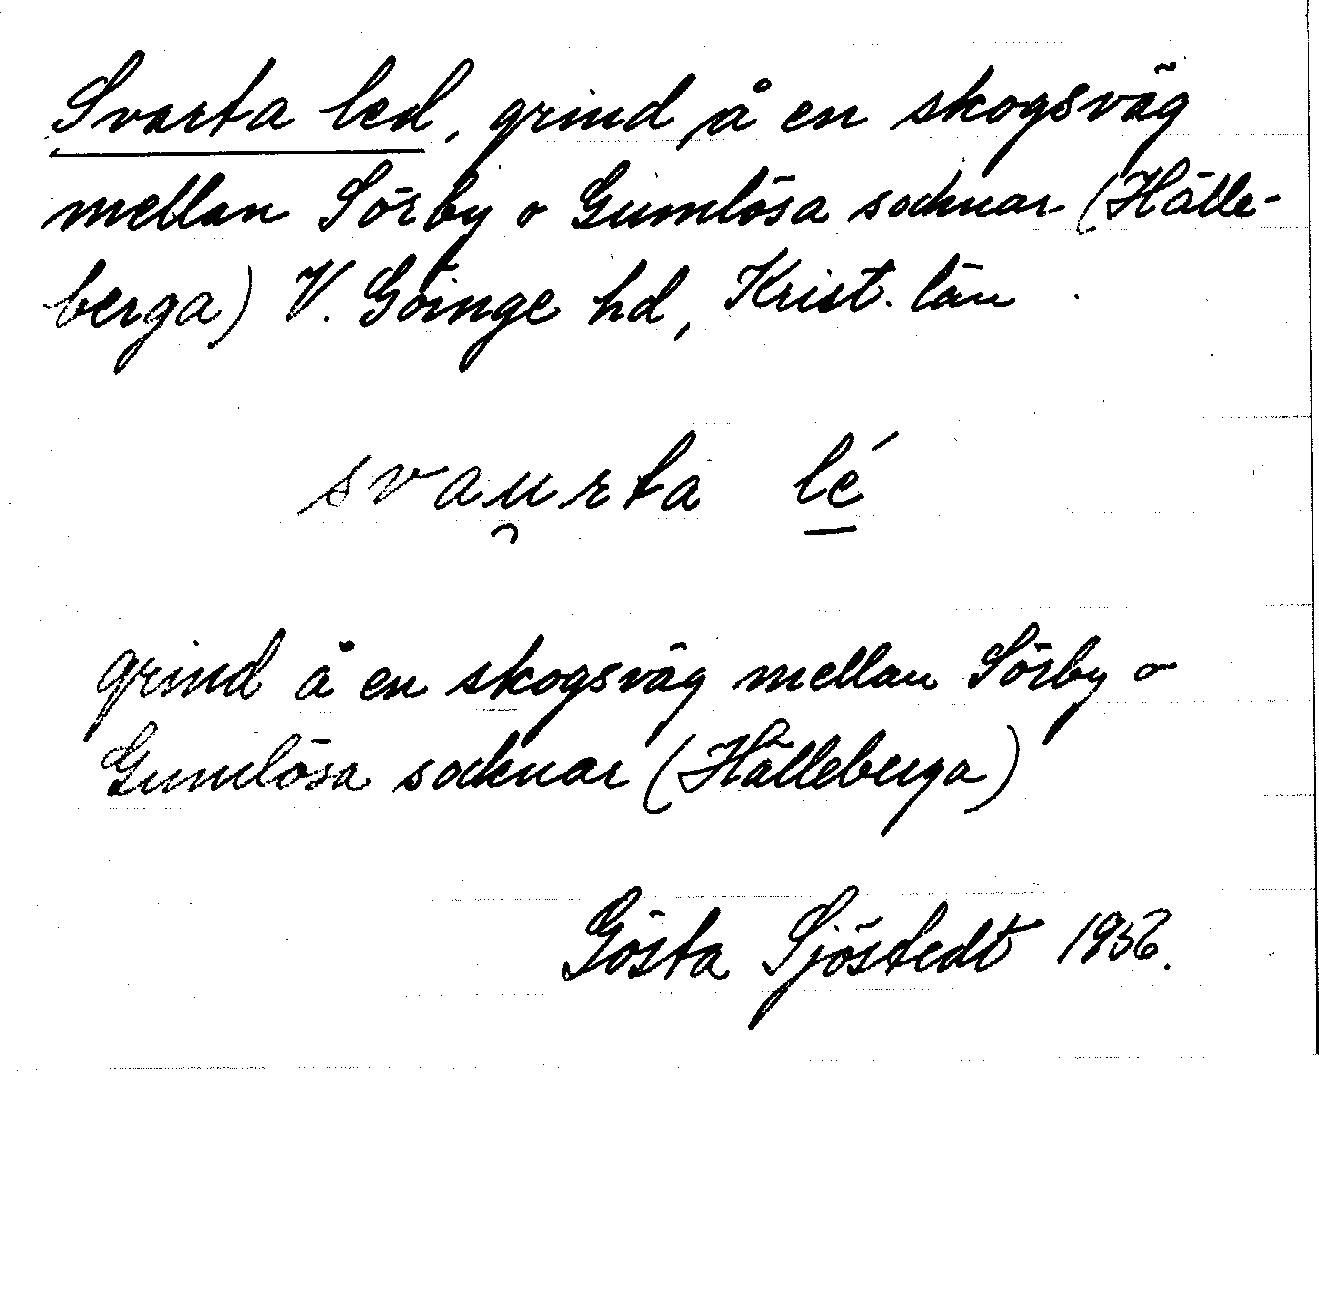 Svarta led, grind å en skogsväg
mellan Sörby o Gumlösa socknar (Hälle-
berga) V. Göinge hd, Krist. län
svau̯rta lé̱
grind å en skogsväg mellan Sörby o
Gumlösa socknar (Hälleberga)
Gösta Sjöstedt 1936.